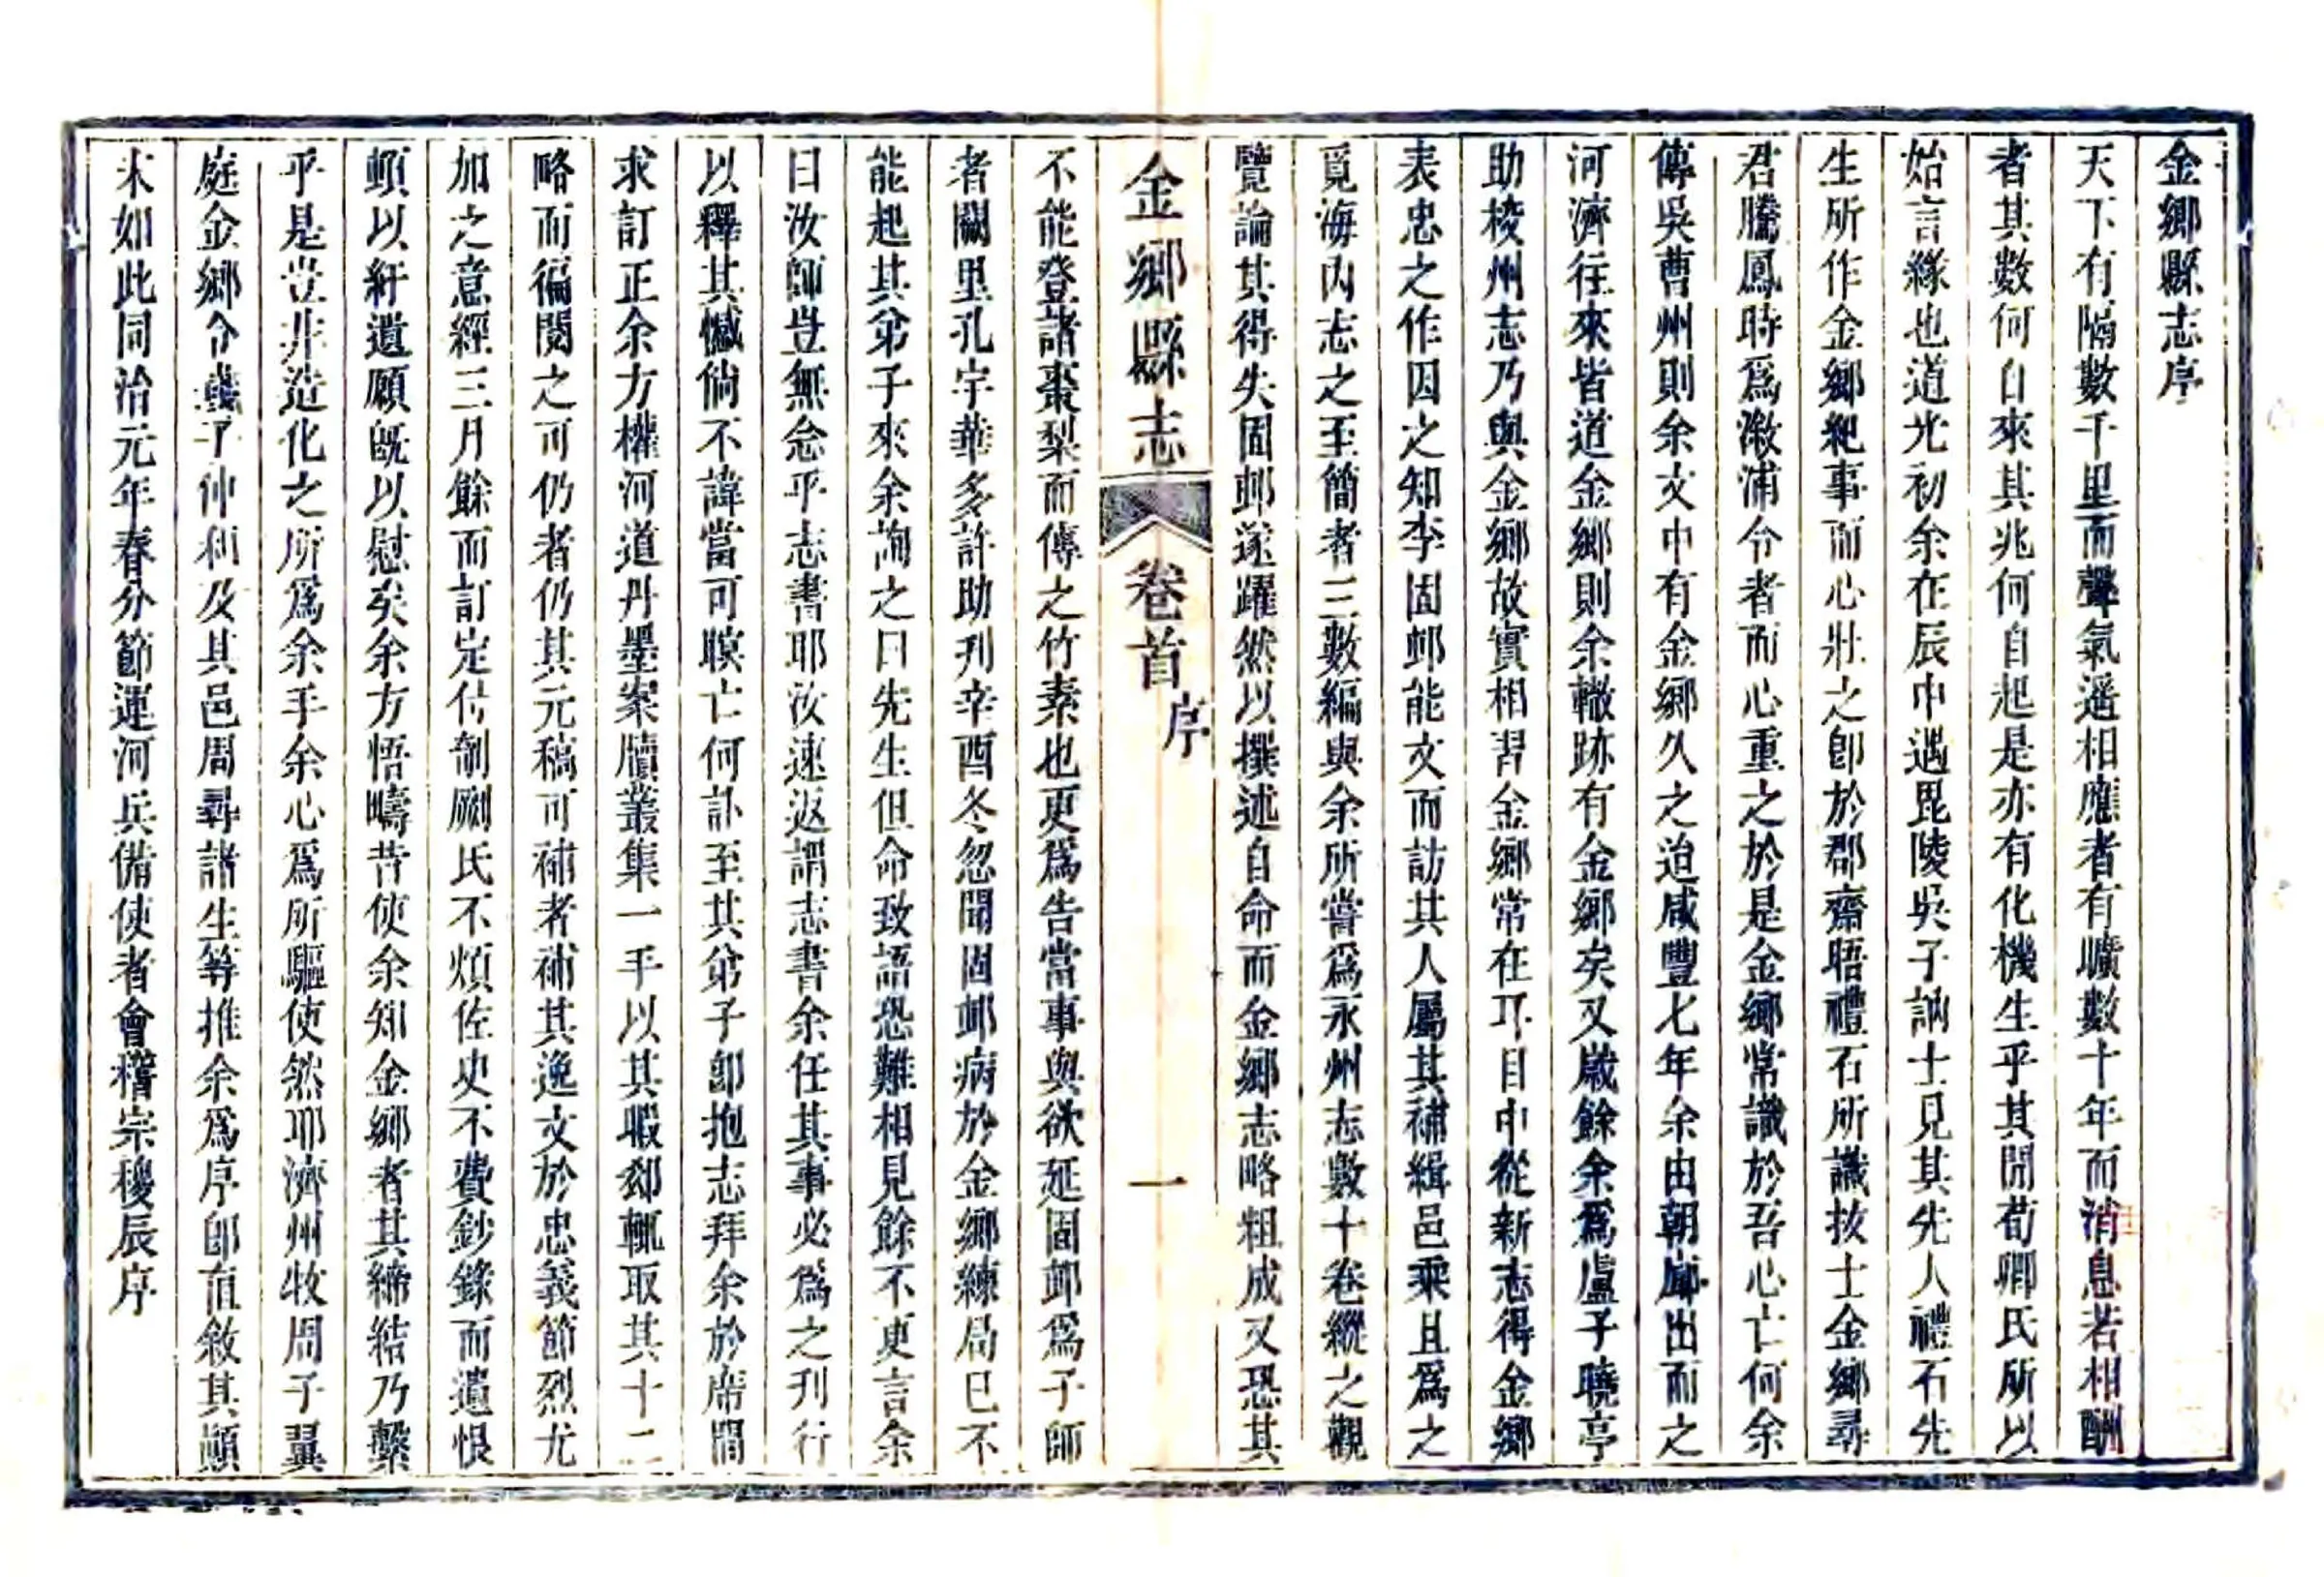 金鄉縣志序
天下有隔數千里而聲氣遥相應者有曠數十年而消息若相酬
者其數何自來其兆何自起是亦有化機生乎其間荀卿氏所以
始言緣也道光初余在辰中遇毘陵吳子訥士見其先人禮石先
生所作金鄉紀事而心壯之卽於郡齋晤禮石所識拔士金鄉尋
君騰鳳時爲溆浦令者而心重之於是金鄉常識於吾心亡何余
傳吳曹州則余文中有金鄉久之迨咸豐七年余由朝廊出而之
河濟往來皆道金鄉則余轍跡有金鄉矣又歲餘余爲盧子曉亭
助校州志乃與金鄉故實相習金鄉常在耳目中從新志得金鄉
表忠之作因之知李固邨能文而訪其人屬其補緝邑乘且爲之
覓海內志之至簡者三數編與余所嘗爲永州志數十卷縱之觀
覽論其得失固邨遂躍然以撰述自命而金鄉志略粗成又恐其
金鄉縣志 卷首 序 一
不能登諸棗梨而傳之竹素也更爲告當事與欲延固邨爲子師
者闕里孔宇華多許助刋辛酉冬忽聞固邨病於金鄉練局已不
能起其弟子來余詢之曰先生但命致語恐難相見餘不更言余
曰汝師豈無念乎志書耶汝速返謂志書余任其事必爲之刋行
以釋其憾倘不諱當可瞑亡何訃至其弟子卽抱志拜余於席間
求訂正余方權河道丹墨案牘叢集一手以其暇刻輒取其十二
略而徧閱之可仍者仍其元稿可補者補其逸文於忠義節烈尤
加之意經三月餘而訂定付剞劂氏不煩佐史不費鈔錄而遺恨
頓以紓遺願旣以慰矣余方悟疇昔使余知金鄉者其締結乃繫
乎是豈非造化之所爲余手余心爲所驅使然耶濟州牧周子翼
庭金鄉令盧子仲利及其邑周尋諸生等推余爲序卽直敘其顚
末如此同治元年春分節運河兵備使者會稽宗稷辰序